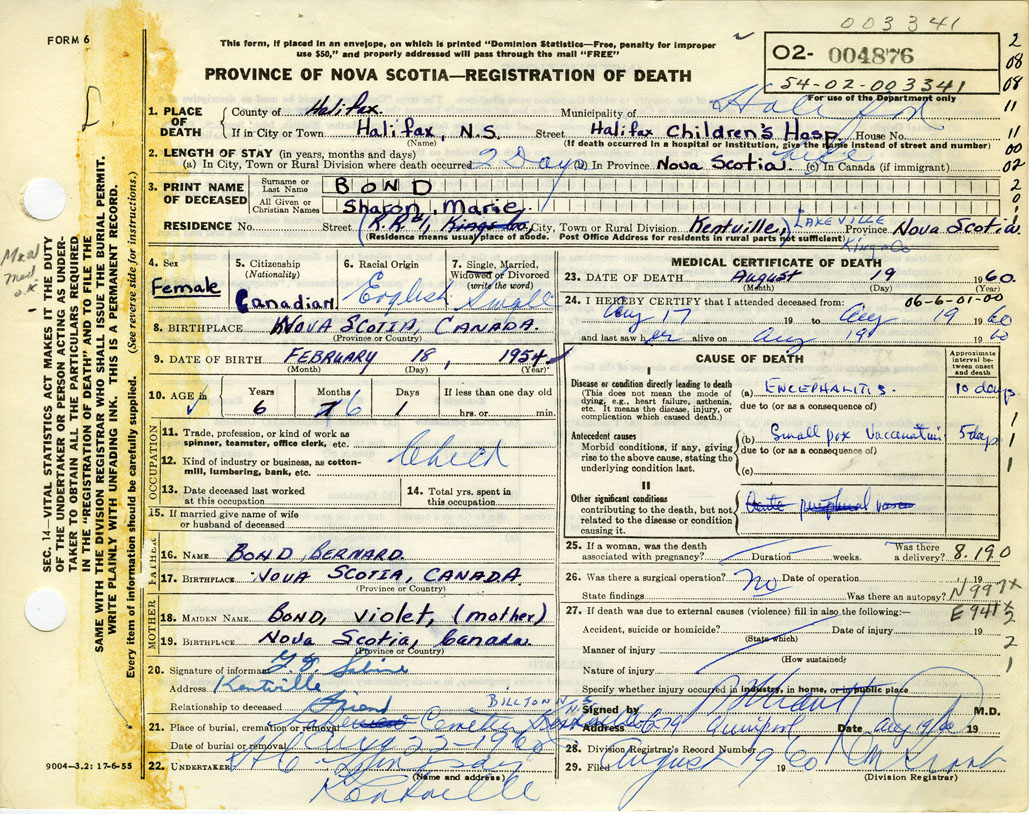 003341
FORM 6
This form, if placed in an envelope, on which is printed "Dominion Statistics—Free, penalty for improper
use $50," and properly addressed will pass through the mail "FREE"
PROVINCE OF NOVA SCOTIA—REGISTRATION OF DEATH
O2- 004876
54-02-003341
For use of the Department only
2
08
08
11
11
00
02
2
0
1
1. PLACE OF DEATH
County of Halifax. Municipality of Halifax
If in City or Town Halifax, N.S. Street Halifax Children's Hosp. House No.
(Name) (If death occurred in a hospital or institution, give the name instead of street and number)
2. LENGTH OF STAY (in years, months and days)
(a) In City, Town or Rural Division where death occurred 2 Days (b) In Province Nova Scotia. Life (c) In Canada (if immigrant)
3. PRINT NAME OF DECEASED
Surname or Last Name BOND
All Given or Christian Names Sharon Marie
RESIDENCE No. Street R.R.#1, Kings Co. City, Town or Rural Division Kentville, LAKEVILLE Province Nova Scotia
(Residence means usual place of abode. Post Office Address for residents in rural parts not sufficient) Kings Co
4. Sex Female
5. Citizenship (Nationality) Canadian
6. Racial Origin English
7. Single, Married, Widowed or Divorced (write the word) Single
8. BIRTHPLACE NOVA SCOTIA, CANADA.
(Province or Country)
9. DATE OF BIRTH FEBRUARY 18, 1954
(Month) (Day) (Year)
10. AGE in Years Months Days If less than one day old
6 7 6 1 hrs. or min.
OCCUPATION
11. Trade, profession, or kind of work as
spinner, teamster, office clerk, etc.
Child
12. Kind of industry or business, as cotton-
mill, lumbering, bank, etc.
13. Date deceased last worked
at this occupation
14. Total yrs. spent in
this occupation
15. If married give name of wife
or husband of deceased
FATHER
16. NAME BOND, BERNARD.
17. BIRTHPLACE NOVA SCOTIA, CANADA
(Province or Country)
MOTHER
18. MAIDEN NAME BOND, Violet, (mother)
19. BIRTHPLACE Nova Scotia, Canada.
(Province or Country)
20. Signature of informant
Address Kentville
Relationship to deceased Friend
21. Place of burial, cremation or removal Cemetery BILLTOWN N.S.
Date of burial or removal Aug 22-1960
22. UNDERTAKER
(Name and address)
Kentville
9004—3.2: 17-6-55
MEDICAL CERTIFICATE OF DEATH
23. DATE OF DEATH August 19 1960
(Month) (Day) (Year)
24. I HEREBY CERTIFY that I attended deceased from: 06-6-01-00
Aug 17 19 to Aug 19 1960
and last saw her alive on Aug 19 1960
CAUSE OF DEATH
Approximate interval between onset and death
I
Disease or condition directly leading to death
(This does not mean the mode of dying, e.g., heart failure, asthenia, etc. It means the disease, injury, or complication which caused death.)
(a) ENCEPHALITIS. 10 days
due to (or as a consequence of)
Antecedent causes
Morbid conditions, if any, giving rise to the above cause, stating the underlying condition last.
(b) Small pox Vaccination 5 days
due to (or as a consequence of)
(c)
1
1
1
II
Other significant conditions
contributing to the death, but not related to the disease or condition causing it.
25. If a woman, was the death
associated with pregnancy? Duration weeks. Was there a delivery? 8.190
26. Was there a surgical operation? No Date of operation 19
State findings Was there an autopsy? N997X
27. If death was due to external causes (violence) fill in also the following:— E941X
Accident, suicide or homicide? Date of injury 19
(State which)
Manner of injury
(How sustained)
Nature of injury
Specify whether injury occurred in industry, in home, or in public place
2
2
1
Signed by M.D.
Address Date Aug 19/60 19
28. Division Registrar's Record Number
29. Filed August 19 1960
(Division Registrar)
SEC. 14—VITAL STATISTICS ACT MAKES IT THE DUTY
OF THE UNDERTAKER OR PERSON ACTING AS UNDER-
TAKER TO OBTAIN ALL THE PARTICULARS REQUIRED
IN THE "REGISTRATION OF DEATH" AND TO FILE THE
SAME WITH THE DIVISION REGISTRAR WHO SHALL ISSUE THE BURIAL PERMIT.
WRITE PLAINLY WITH UNFADING INK. THIS IS A PERMANENT RECORD.
Every item of information should be carefully supplied. (See reverse side for instructions.)
med.
o.k